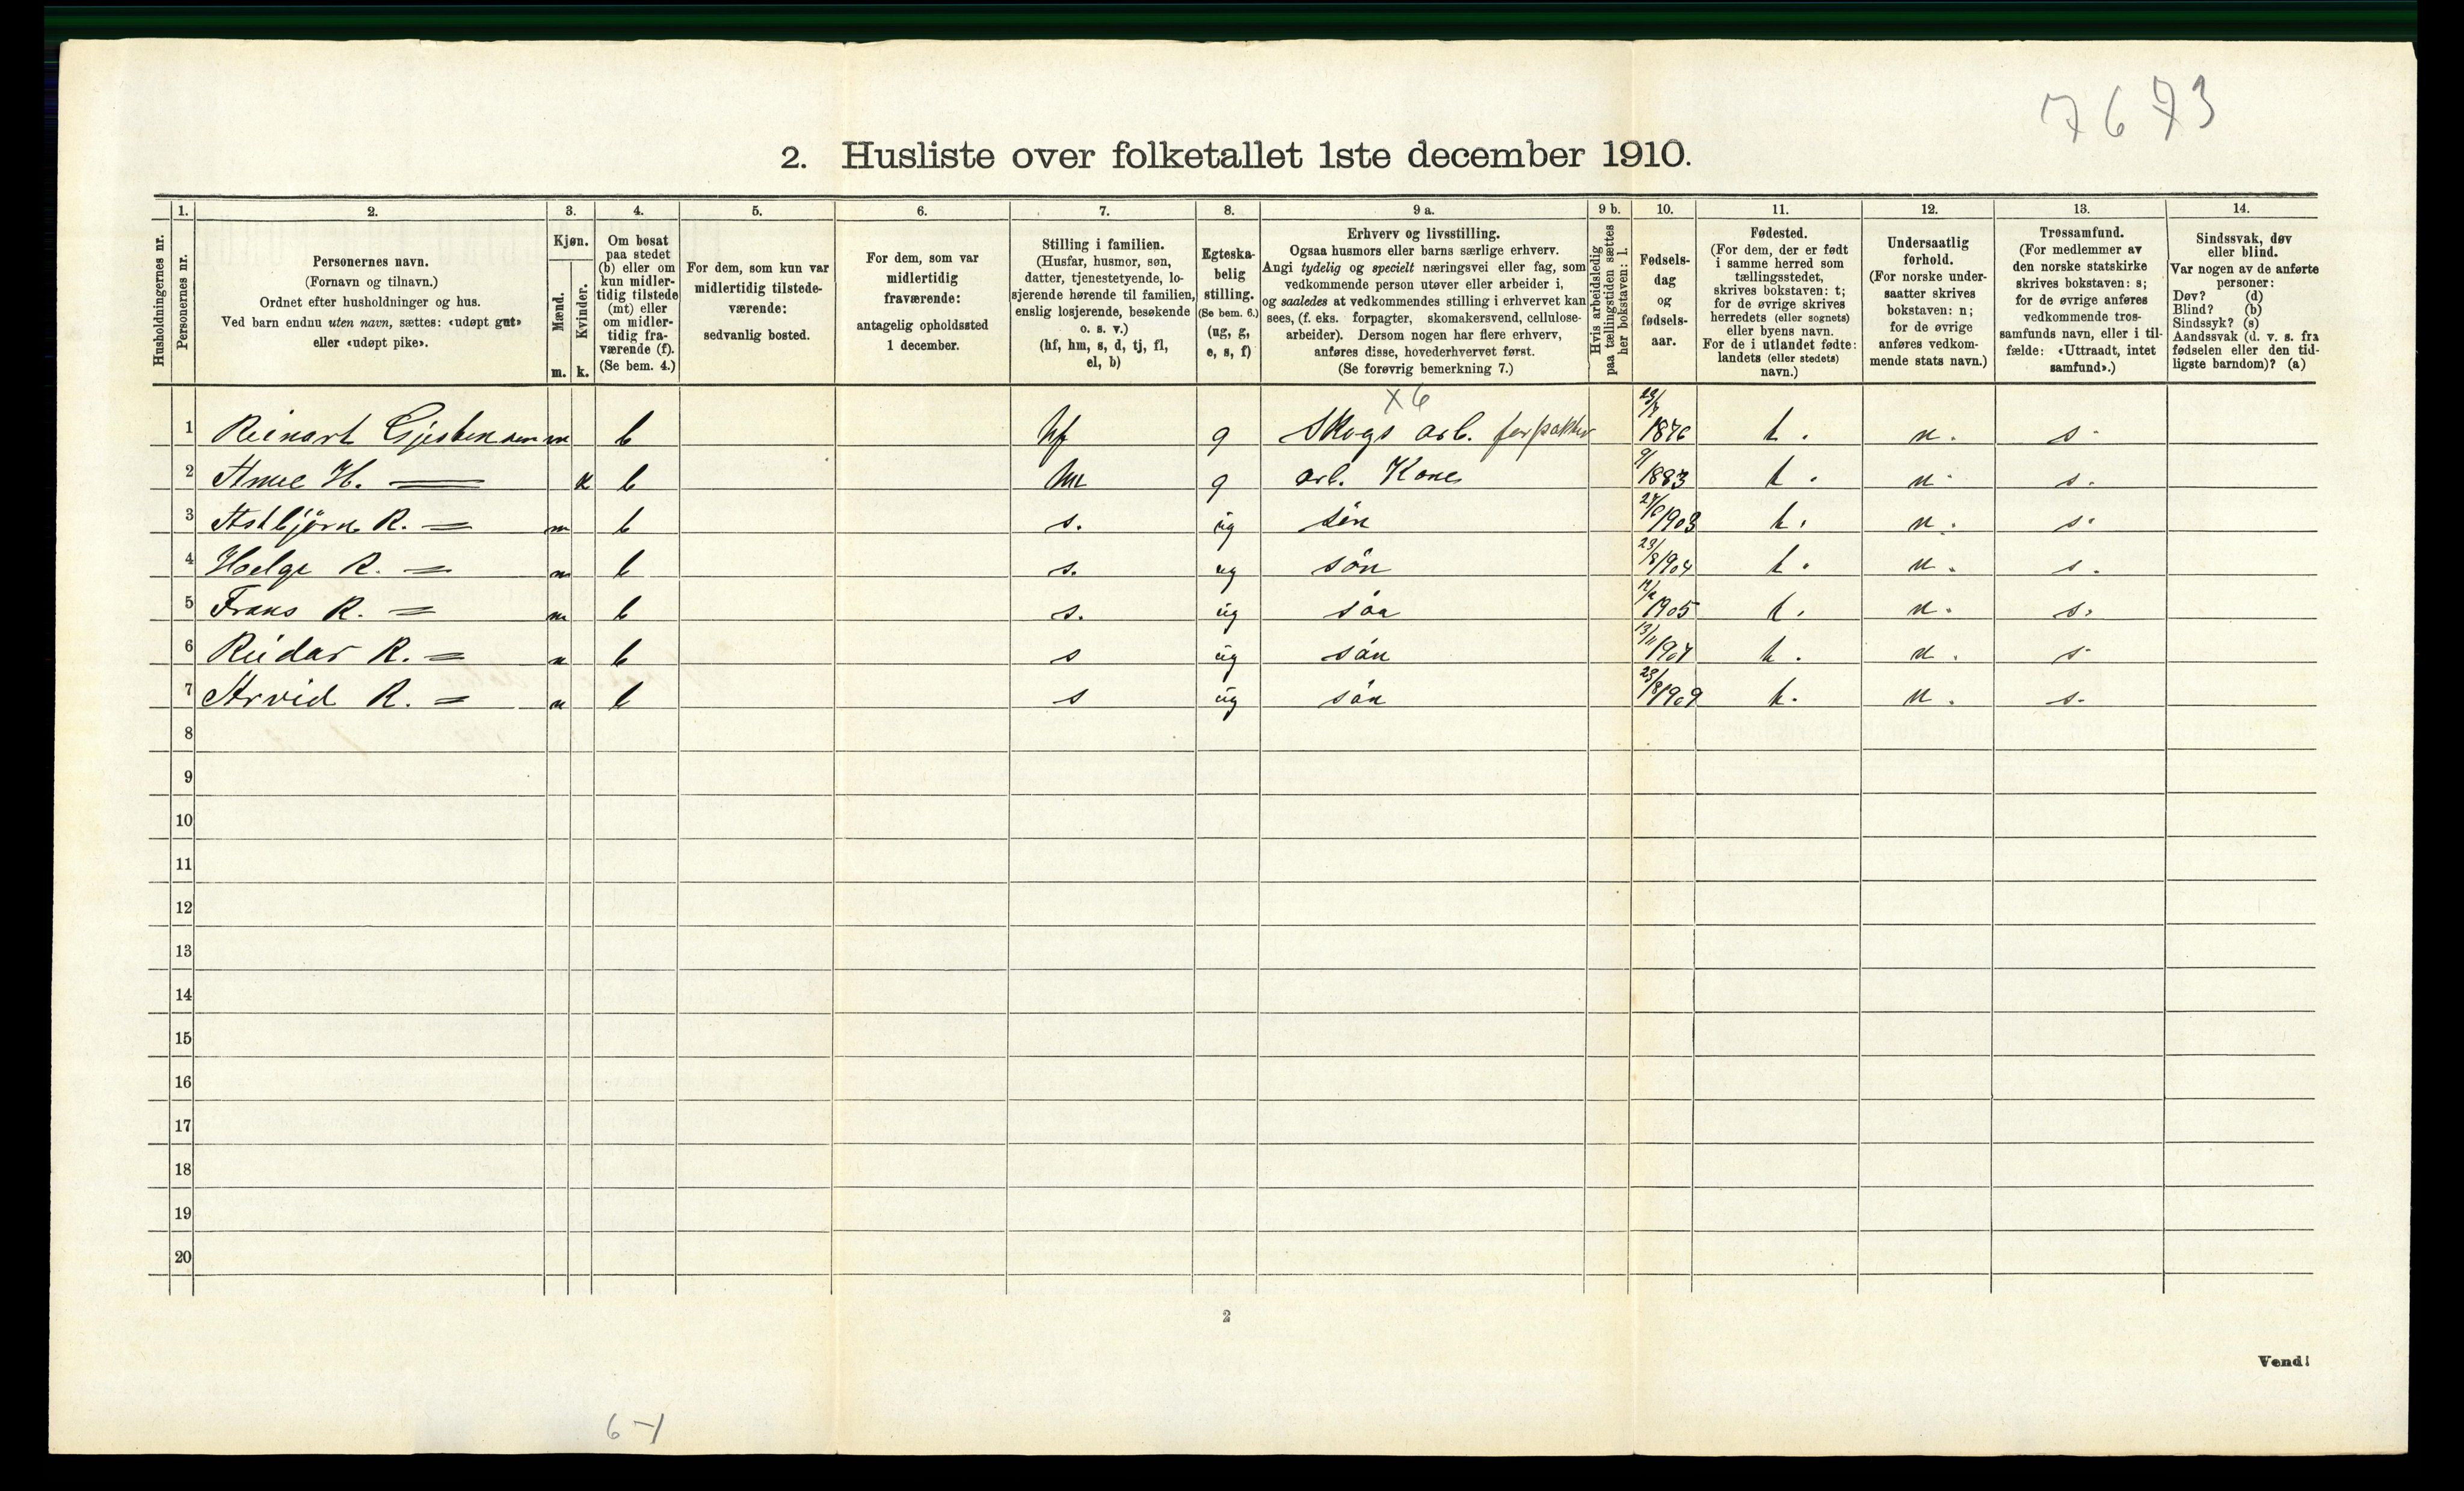 7673
2. Husliste over folketallet 1ste december 1910.
Husholdningernes nr.
1. 2. 3. 4. 5. 6. 7. 8. 9 a. 9 b. 10. 11. 12. 13. 14.
Personernes nr.
Personernes navn.
(Fornavn og tilnavn.)
Ordnet efter husholdninger og hus.
Ved barn endnu uten navn, sættes: «udøpt gut»
eller «udøpt pike».
Kjøn.
Mænd.
Kvinder.
m. k.
Om bosat
paa stedet
(b) eller om
kun midler-
tidig tilstede
(mt) eller
om midler-
tidig fra-
værende (f).
(Se bem. 4.)
For dem, som kun var
midlertidig tilstede-
værende:
sedvanlig bosted.
For dem, som var
midlertidig
fraværende:
antagelig opholdssted
1 december.
Stilling i familien.
(Husfar, husmor, søn,
datter, tjenestetyende, lo-
sjerende hørende til familien,
enslig losjerende, besøkende
o. s. v.)
(hf, hm, s, d, tj, fl,
el, b)
Egteska-
belig
stilling.
(Se bem. 6.)
(ug, g,
e, s, f)
Erhverv og livsstilling.
Ogsaa husmors eller barns særlige erhverv.
Angi tydelig og specielt næringsvei eller fag, som
vedkommende person utøver eller arbeider i,
og saaledes at vedkommendes stilling i erhvervet kan
sees, (f. eks. forpagter, skomakersvend, cellulose-
arbeider). Dersom nogen har flere erhverv,
anføres disse, hovederhvervet først.
(Se forøvrig bemerkning 7.)
Hvis arbeidsledig
paa tællingstiden sættes
her bokstaven: l.
Fødsels-
dag
og
fødsels-
aar.
Fødested.
(For dem, der er født
i samme herred som
tællingsstedet,
skrives bokstaven: t;
for de øvrige skrives
herredets (eller sognets)
eller byens navn.
For de i utlandet fødte:
landets (eller stedets)
navn.)
Undersaatlig
forhold.
(For norske under-
saatter skrives
bokstaven: n;
for de øvrige
anføres vedkom-
mende stats navn.)
Trossamfund.
(For medlemmer av
den norske statskirke
skrives bokstaven: s;
for de øvrige anføres
vedkommende tros-
samfunds navn, eller i til-
fælde: «Uttraadt, intet
samfund».)
Sindssvak, døv
eller blind.
Var nogen av de anførte
personer:
Døv? (d)
Blind? (b)
Sindssyk? (s)
Aandssvak (d. v. s. fra
fødselen eller den tid-
ligste barndom)? (a)
X 6
1 Reinart Gjestensen m b hf g Skogs arb. forpakter 1876 t. n. s.
2 H. k b hm g arb. Kone 1883 t. n. s.
3 Astbjörn R. m b s. ug sön 1903 t. n. s.
4 Helge R. m b s. ug sön 23/8 1904 t. n. s.
5 Frans R. m b s. ug sön 1905 t. n. s.
6 Reidar R. m b s ug sön 13/11 1907 t. n. s.
7 Arvid R. m b s ug sön 23/8 1909 t. n. s.
8
9
10
11
12
13
14
15
16
17
18
19
20
2
Vend!
6-1